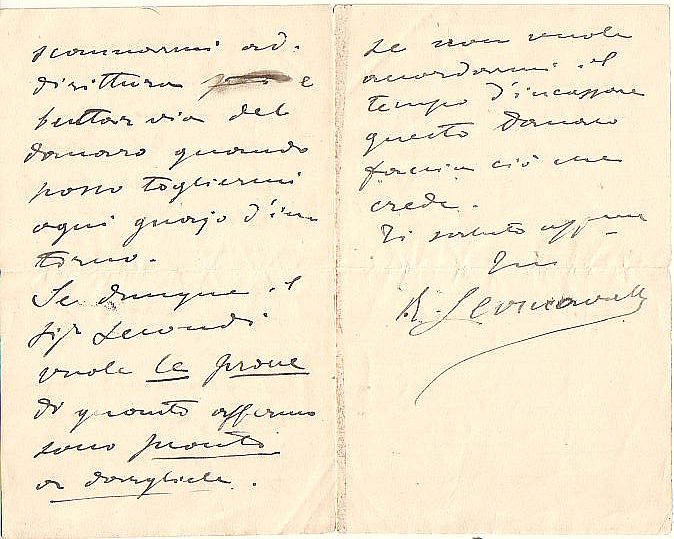 scannarmi ad-
dirittura e
buttar via del
danaro quando
posso togliermi
ogni guajo d'in-
torno.
Se dunque il
Sigr Secondi
vuole le prove
di quanto affermo
sono pronto
a dargliele.
Se non vuole
accordarmi il
tempo d'incassare
questo danaro
faccia ciò che
crede.
Ti saluto
R. Leoncavallo